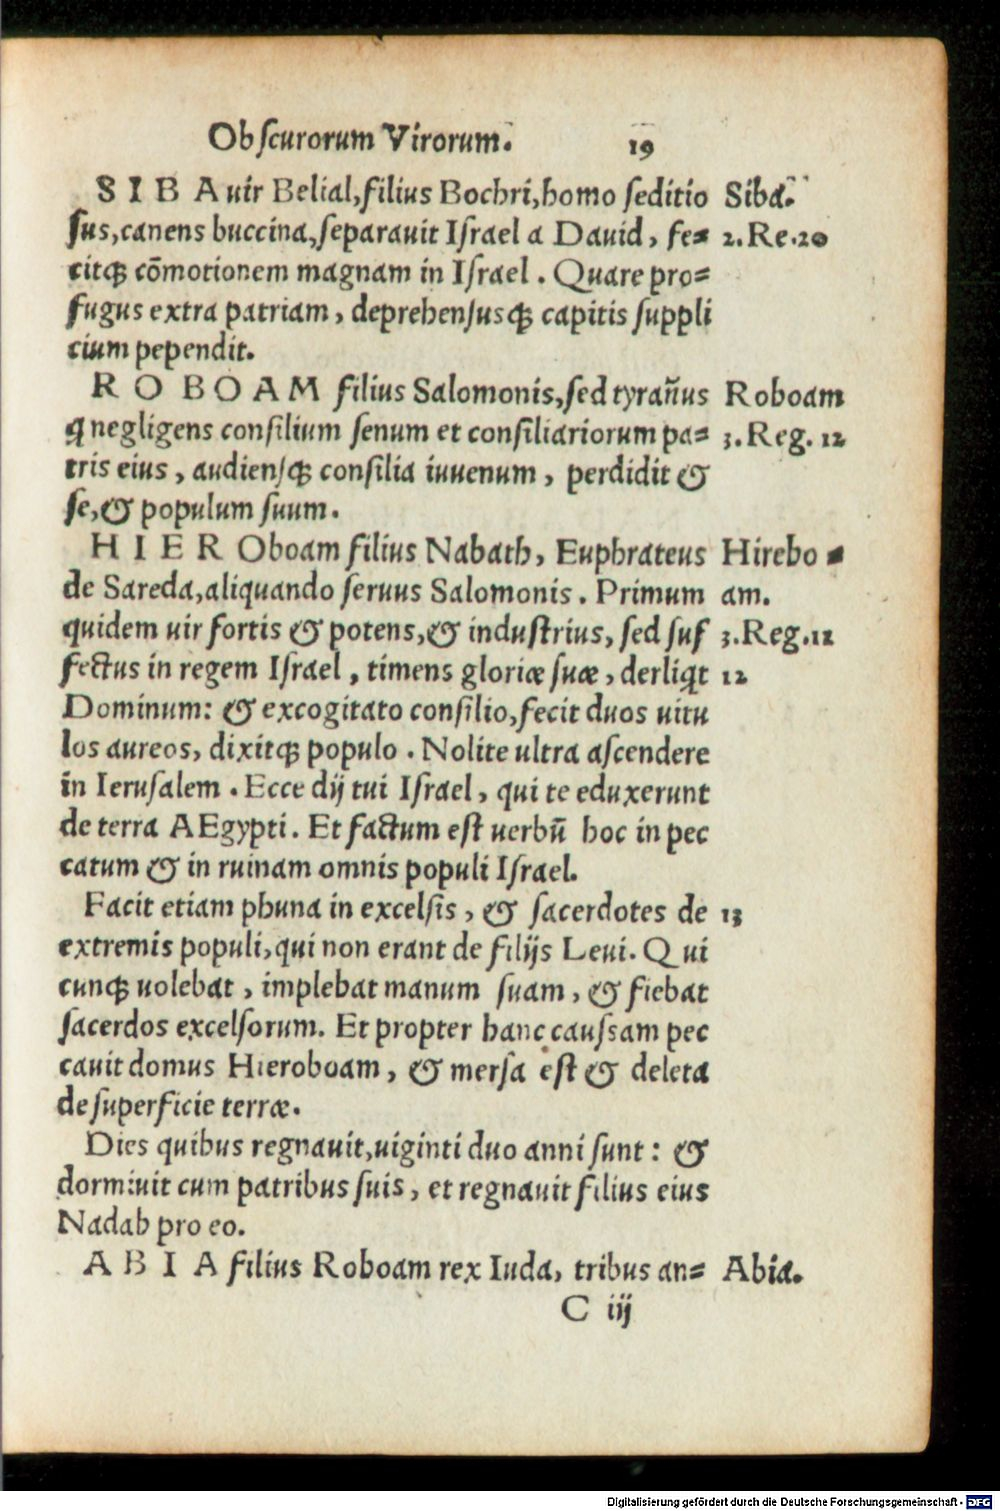 Obſcurorum Virorum. 19
S I B A uir Belial, filius Bochri, homo ſeditio Siba.
ſus, canens buccina, ſeparauit Iſrael a Dauid, fe= 2. Re. 20
citqꝫ cōmotionem magnam in Iſrael. Quare pro=
fugus extra patriam, deprehenſusqꝫ capitis ſuppli
cium pependit.
R O B O A M filius Salomonis, ſed tyrañus Roboam
q negligens conſilium ſenum et conſiliariorum pa= 3. Reg. 12
tris eius, audienſqꝫ conſilia iuuenum, perdidit &
ſe, & populum ſuum.
H I E R Oboam filius Nabath, Euphrateus Hirebo=
de Sareda, aliquando ſeruus Salomonis. Primum am.
quidem uir fortis & potens, & induſtrius, ſed ſuf 3. Reg. 11
fectus in regem Iſrael, timens gloriæ ſuæ, derliqt 12
Dominum: & excogitato conſilio, fecit duos uitu
los aureos, dixitqꝫ populo. Nolite ultra aſcendere
in Ieruſalem. Ecce dij tui Iſrael, qui te eduxerunt
de terra AEgypti. Et factum eſt uerbū hoc in pec
catum & in ruinam omnis populi Iſrael.
Facit etiam phuna in excelſis, & ſacerdotes de 13
extremis populi, qui non erant de filijs Leui. Q ui
cunqꝫ uolebat, implebat manum ſuam, & fiebat
ſacerdos excelſorum. Et propter hanc cauſſam pec
cauit domus Hieroboam, & merſa eſt & deleta
de ſuperficie terræ.
Dies quibus regnauit, uiginti duo anni ſunt: &
dormiuit cum patribus ſuis, et regnauit filius eius
Nadab pro eo.
A B I A filius Roboam rex Iuda, tribus an= Abia.
C iij
Digitalisierung gefördert durch die Deutsche Forschungsgemeinschaft - DFG